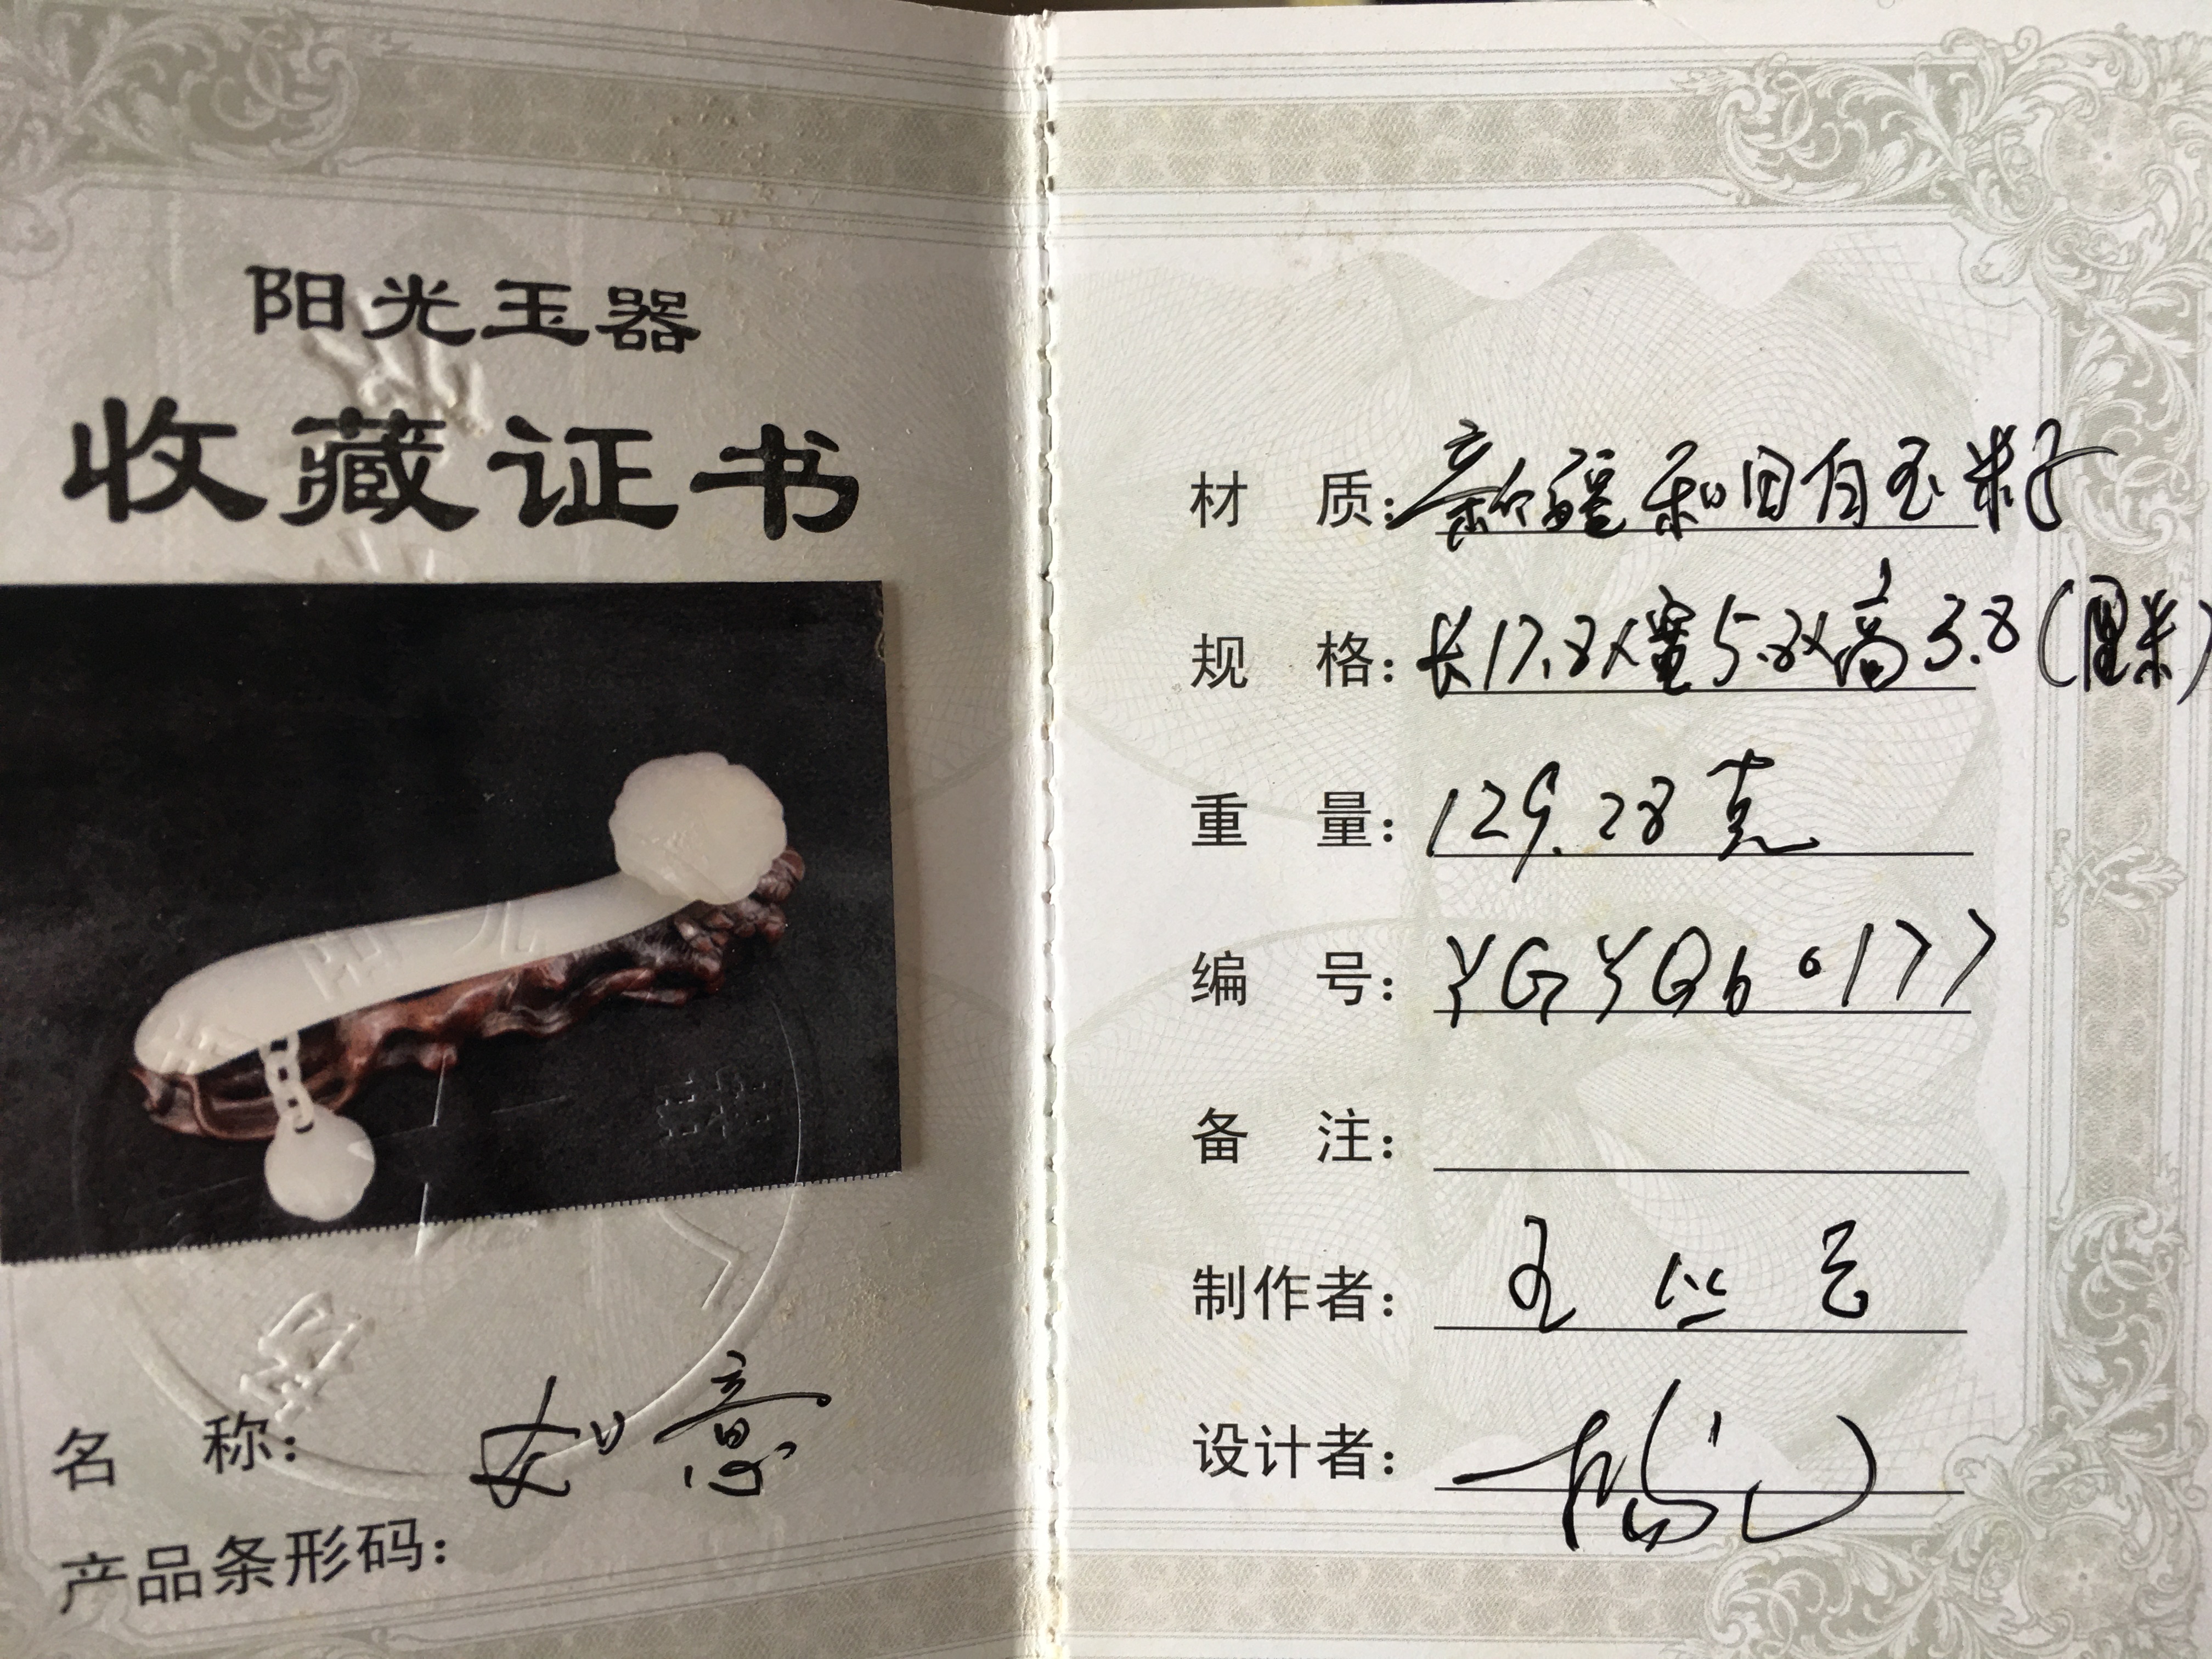 阳光玉器
收藏证书
名 称: 如意
产品条形码:
材 质: 新疆和田白玉籽
规 格: 长17.8×宽5.8×高3.8(厘米)
重 量: 129.28克
编 号: YGYQ60177
备 注:
制作者: 王
设计者: